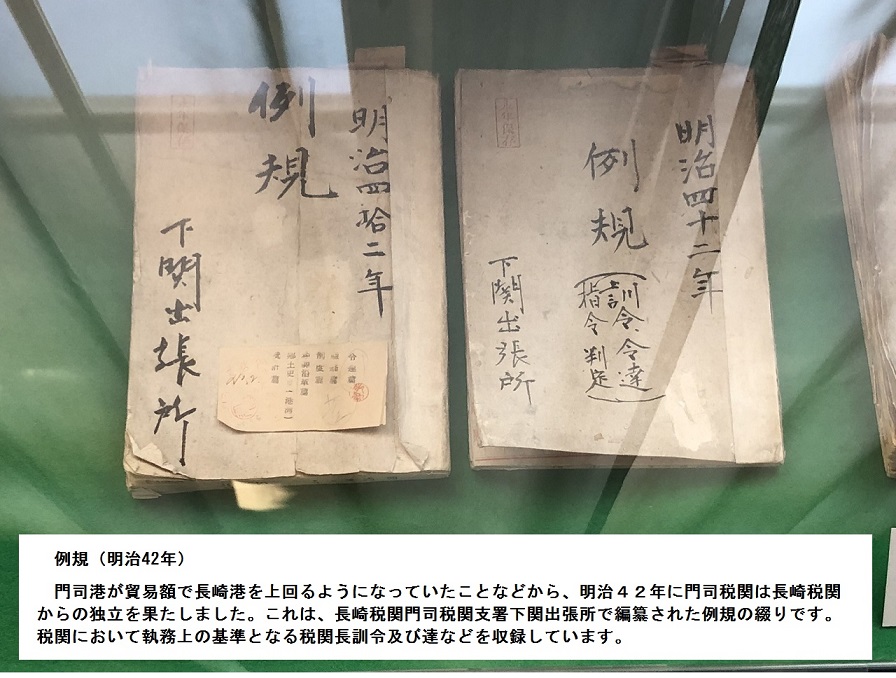 明治四拾二年
例規
下関出張所
永久保存
令達篇
制度篇
明治四十二年
例規
訓令、令達
指令判定
下関出張所
永久保存
例規（明治42年）
門司港が貿易額で長崎港を上回るようになっていたことなどから、明治４２年に門司税関は長崎税関
からの独立を果たしました。これは、長崎税関門司税関支署下関出張所で編纂された例規の綴りです。
税関において執務上の基準となる税関長訓令及び達などを収録しています。